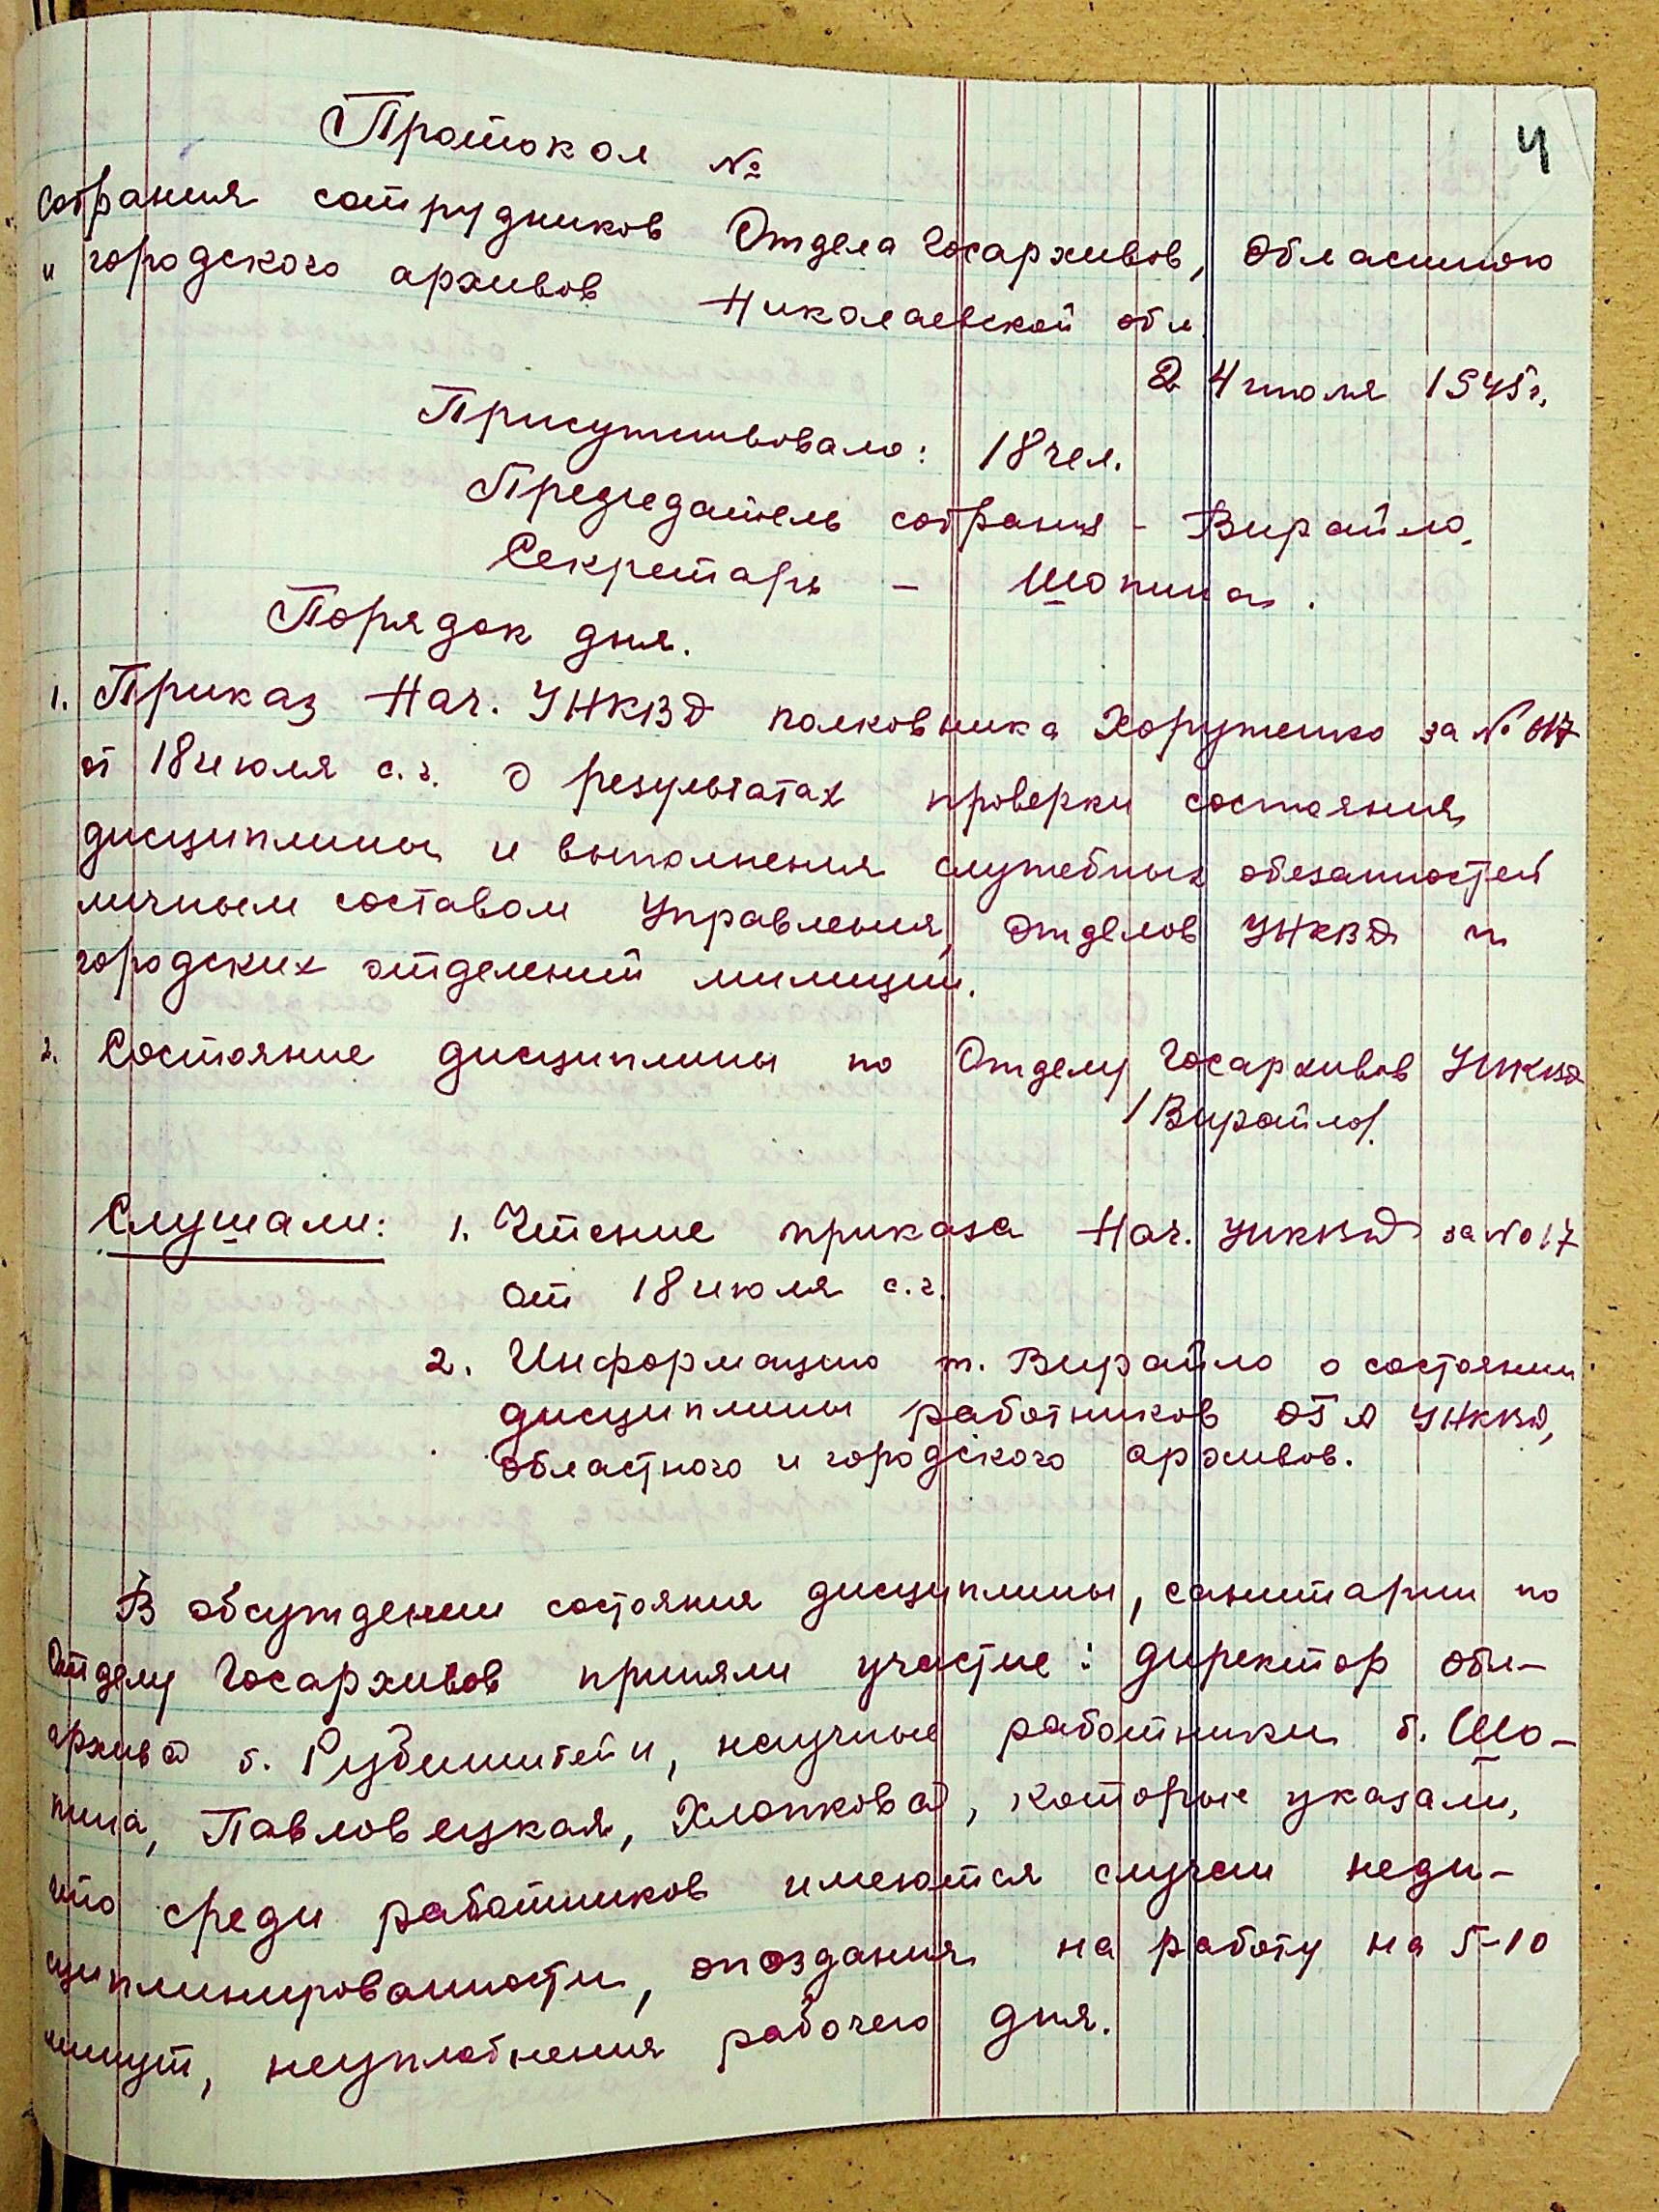 4
Протокол №
Собрания сотрудников Отдела Госархивов, Областного
и городского архивов Николаевской обл.
24 июля 1945 г.
Присутствовало: 18 чел.
Председатель собрания - Вирайло.
Секретарь - Шопина.
Порядок дня.
1. Приказ Нач. УНКВД полковника Хоруженко за № 017
от 18 июля с.г. о результатах проверки состояния
дисциплины и выполнения служебных обезанностей
личным составом Управления, отделов УНКВД и
городских отделений милиции.
2. Состояние дисциплины по Отделу Госархивов УНКВД
/Вирайло/.
Слушали: 1. Чтение приказа Нач. УНКВД за № 017
от 18 июля с.г.
2. Информацию т. Вирайло о состоянии
дисциплины работников ОГА УНКВД,
областного и городского архивов.
В обсуждении состояния дисциплины, санитарии по
Отделу Госархивов приняли участие: директор обл-
архива т. Рубинштейн, научные работники т. Шо-
пина, Павловецкая, Хлопкова, которые указали,
что среди работников имеются случаи неди-
сциплинированности, опоздания на работу на 5-10
минут, неуплотнения рабочего дня.